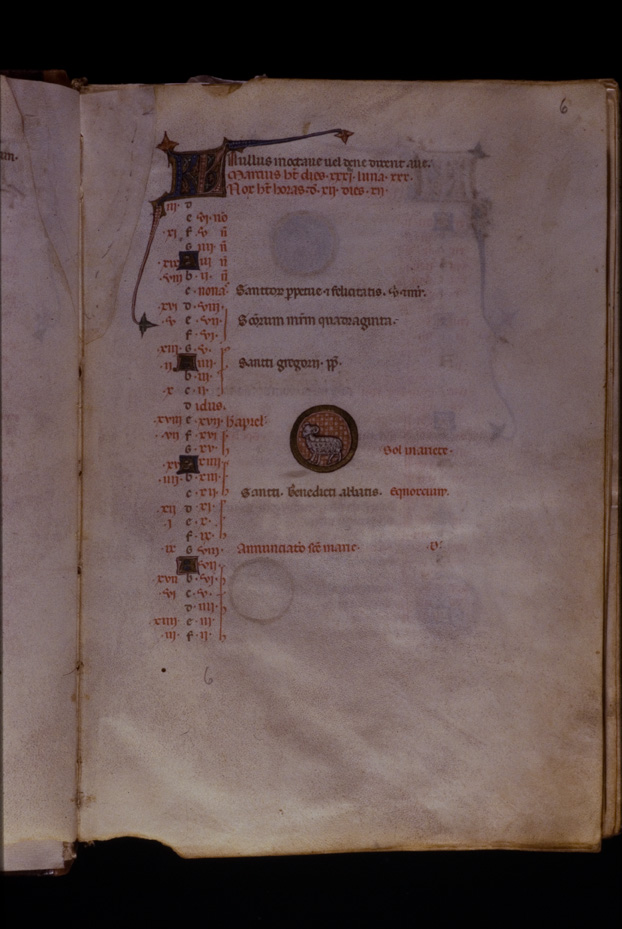 6
KL Nullus in octave vel dene dixerit ave.
Marcius ht dies xxxi luna xxx.
Nox ht horas xii dies xii
iii d
e vi no
xi f v n
g iiii n
xix A iii n
viii b ii n
c nona Sanctor ppetue ⁊ felicitatis.
xvi d viii
v e vii Scorum mrm quadraginta.
f vi
xiii g v
ii A iiii Sancti gregorii pp.
b iii
x c ii
d idus.
xviii e xvii kapiel
vii f xvi
g xv Sol in ariete
xv A xiiii
iiii b xiii
c xii Sancti benedicti abbatis. Equinocium.
xii d xi
i e x
f ix
ix g viii Annunciatio sce marie.
A vii
xvii b vi
vi c v
d iiii
xiiii e iii
iii f ii
6